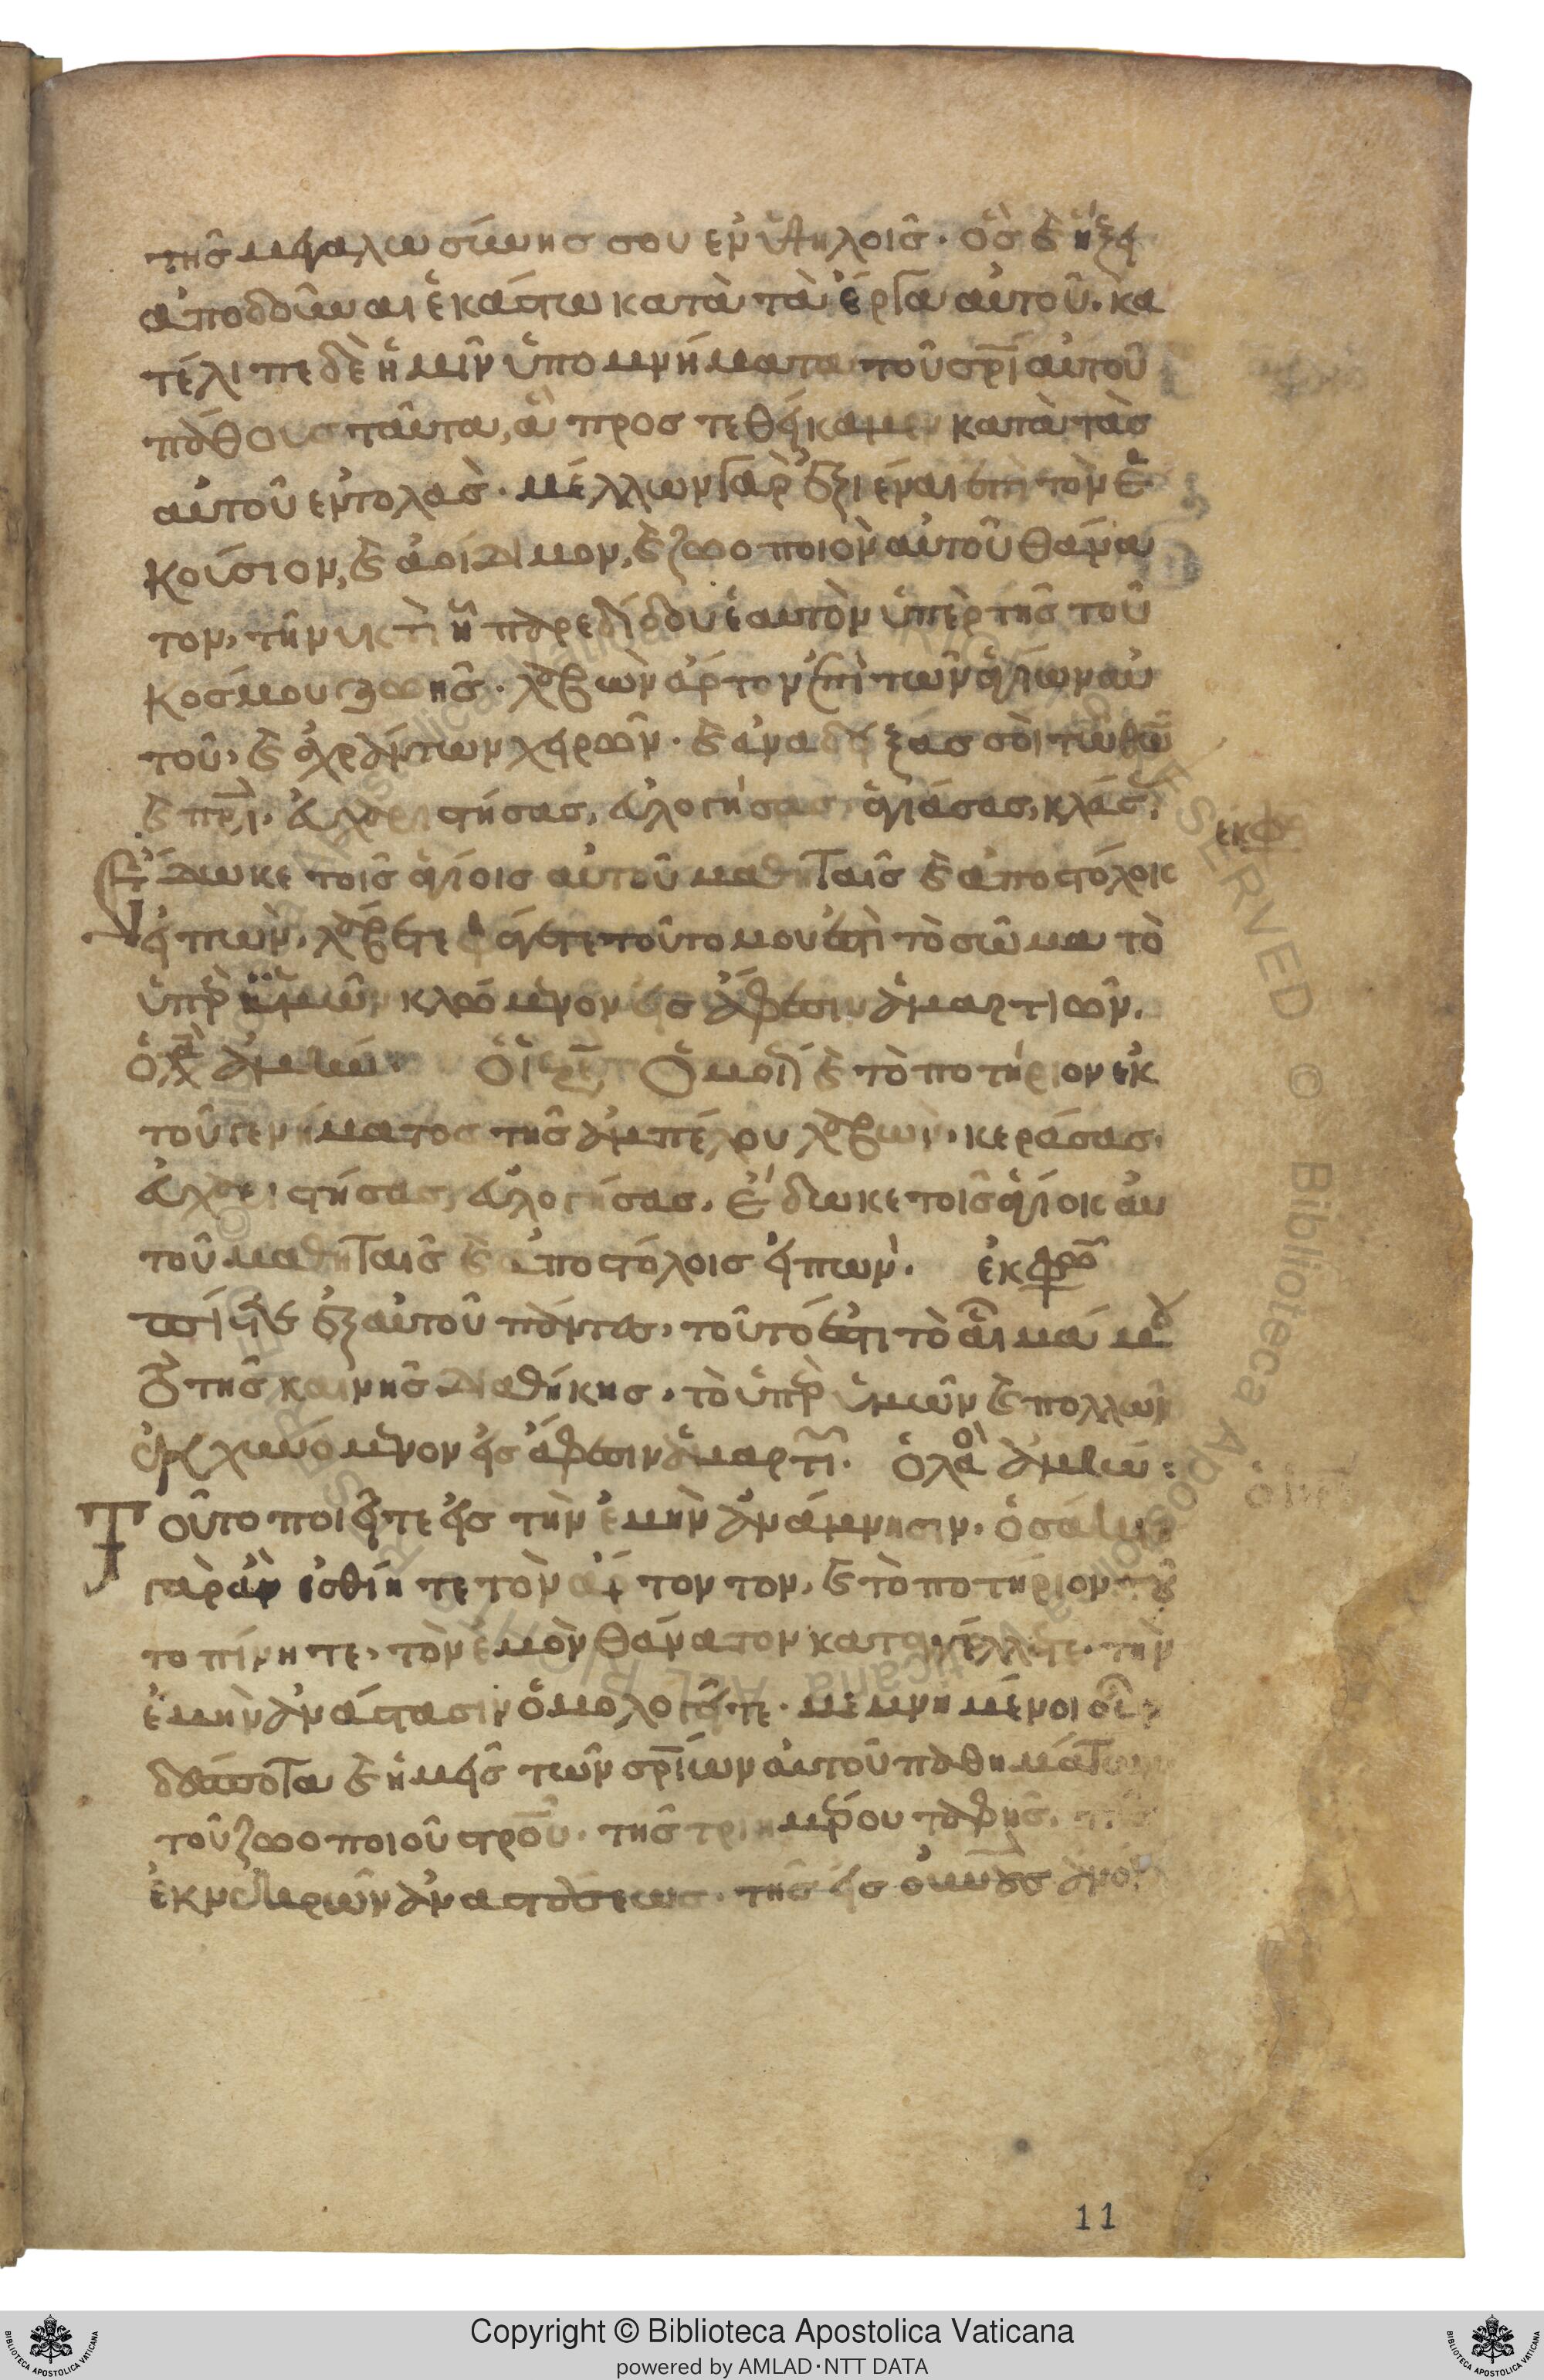 τῆς μεγαλωσύνης σου ἐν ὑψηλοῖς· ὃς καὶ ἥξει
ἀποδοῦναι ἑκάστω κατὰ τὰ ἔργα αὐτοῦ. κα
τέλιπε δὲ ἡμῖν ὑπομνήματα τοῦ σρίου αὐτοῦ
πάθους ταῦτα, ἃ προστεθείκαμεν κατὰ τὰς
αὐτοῦ ἐντολάς· μέλλων γὰρ ἐξιέναι ἐπὶ τὸν ἑ
κούσιον, καὶ ἀοίδιμον, καὶ ζωοποιὸν αὐτοῦ θάνα
τον, τῆ νυκτὶ ἧ παρεδίδου ἑαυτὸν ὑπὲρ τῆς τοῦ
κόσμου ζωῆς· λαβὼν ἄρτον ἐπὶ τῶν ἁγίων αὐ
τοῦ, καὶ ἀχράντων χειρῶν· καὶ ἀναδείξας σοὶ τῶ θῶ
καὶ πρὶ, εὐχαριστήσας, εὐλογήσας, ἁγιάσας, κλάσας,
ἐκφω
Ἔδωκε τοῖς ἁγίοις αὐτοῦ μαθηταῖς καὶ ἀποστόλοις
εἰπών, λάβετε φάγετε τοῦτό μου ἐστὶ τὸ σῶμα τὸ
ὑπὲρ ὑμῶν κλώμενον εἰς ἄφεσιν ἁμαρτιῶν.
ὁ λα ἀμήν· ὁ ἱερεὺς Ὁμοίως καὶ τὸ ποτήριον ἐκ
τοῦ γεννήματος τῆς ἀμπέλου λαβών, κεράσας,
εὐχαριστήσας, εὐλογήσας, ἔδωκε τοῖς ἁγίοις αὐ
τοῦ μαθηταῖς καὶ ἀποστόλοις εἰπών. ἐκφω
πίετε ἐξ αὐτοῦ πάντες, τοῦτό ἐστι τὸ αἷμά μου
τὸ τῆς καινῆς διαθήκης, τὸ ὑπὲρ ὑμῶν καὶ πολλῶν
ἐκχυνόμενον εἰς ἄφεσιν ἁμαρτι. ὁ λαὸ ἀμήν:
Τοῦτο ποιεῖτε εἰς τὴν ἐμὴν ἀνάμνησιν· ὁσάκις
γὰρ ἂν ἐσθίητε τὸν ἄρτον τον, καὶ τὸ ποτήριον τοῦ
το πίνητε, τὸν ἐμὸν θάνατον καταγγέλλετε· τὴν
ἐμὴν ἀνάστασιν ὁμολογεῖτε· μεμνημένοι οὖν
δέσποτα καὶ ἡμεῖς τῶν σρίων αὐτοῦ παθημάτων
τοῦ ζωοποιοῦ στροῦ· τῆς τριημέρου ταφῆς, τῆς
ἐκ νεκρῶν ἀναστάσεως· τῆς εἰς οὐνοὺς ἀνό
11
Copyright © Biblioteca Apostolica Vaticana
powered by AMLAD·NTT DATA